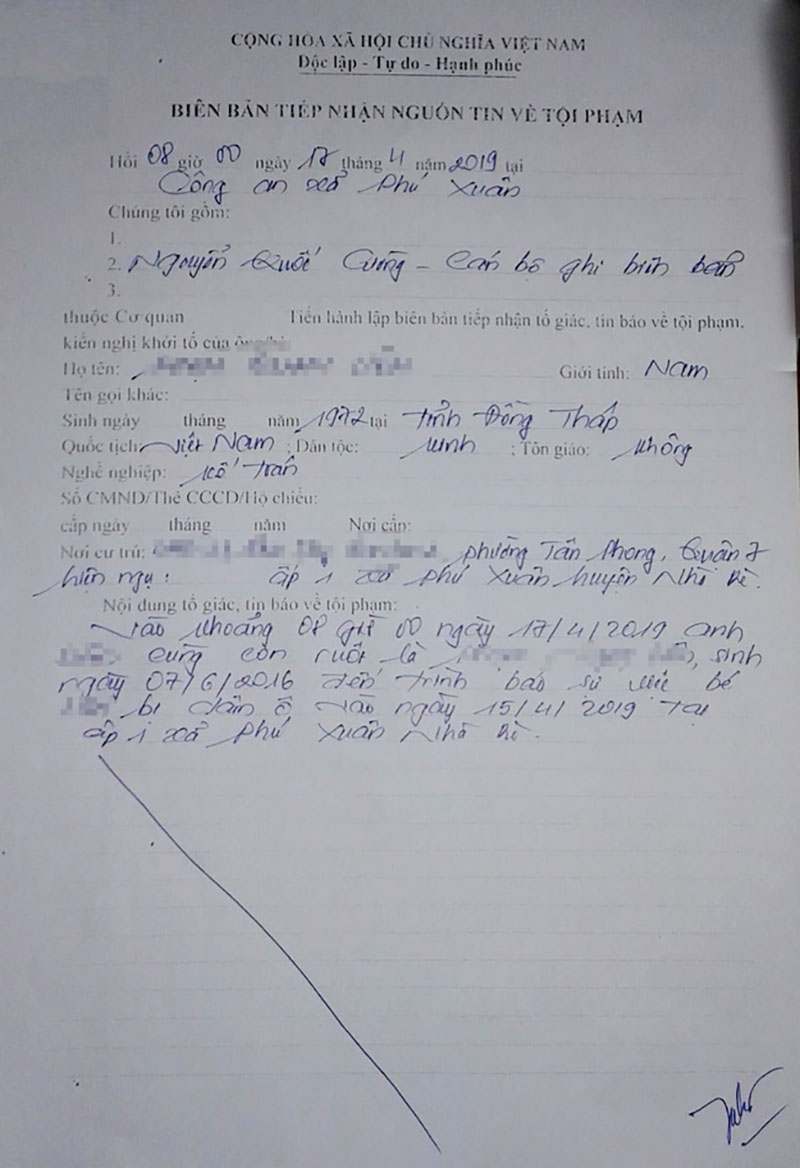 CỘNG HÒA XÃ HỘI CHỦ NGHĨA VIỆT NAM
Độc lập - Tự do - Hạnh phúc
BIÊN BẢN TIẾP NHẬN NGUỒN TIN VỀ TỘI PHẠM
Hồi 08 giờ 00 ngày 17 tháng 4 năm 2019 tại
Công an xã Phú Xuân
Chúng tôi gồm:
1.
2. Nguyễn Quốc Cường - Cán bộ ghi biên bản
3.
thuộc Cơ quan Tiến hành lập biên bản tiếp nhận tố giác, tin báo về tội phạm,
kiến nghị khởi tố của ông/bà
Họ tên: Giới tính: Nam
Tên gọi khác:
Sinh ngày tháng năm 1972 tại tỉnh Đồng Tháp
Quốc tịch: Việt Nam ; Dân tộc: Kinh ; Tôn giáo: Không
Nghề nghiệp:
Số CMND/Thẻ CCCD/Hộ chiếu:
cấp ngày tháng năm Nơi cấp:
Nơi cư trú: phường Tân Phong, Quận 7
hiện ngụ: ấp 1 xã Phú Xuân huyện Nhà Bè.
Nội dung tố giác, tin báo về tội phạm:
Vào khoảng 08 giờ 00 ngày 17/4/2019 anh
cùng con ruột là , sinh
ngày 07/6/2016 đến trình báo sự việc bé
bị dâm ô vào ngày 15/4/2019 tại
ấp 1 xã Phú Xuân Nhà Bè.